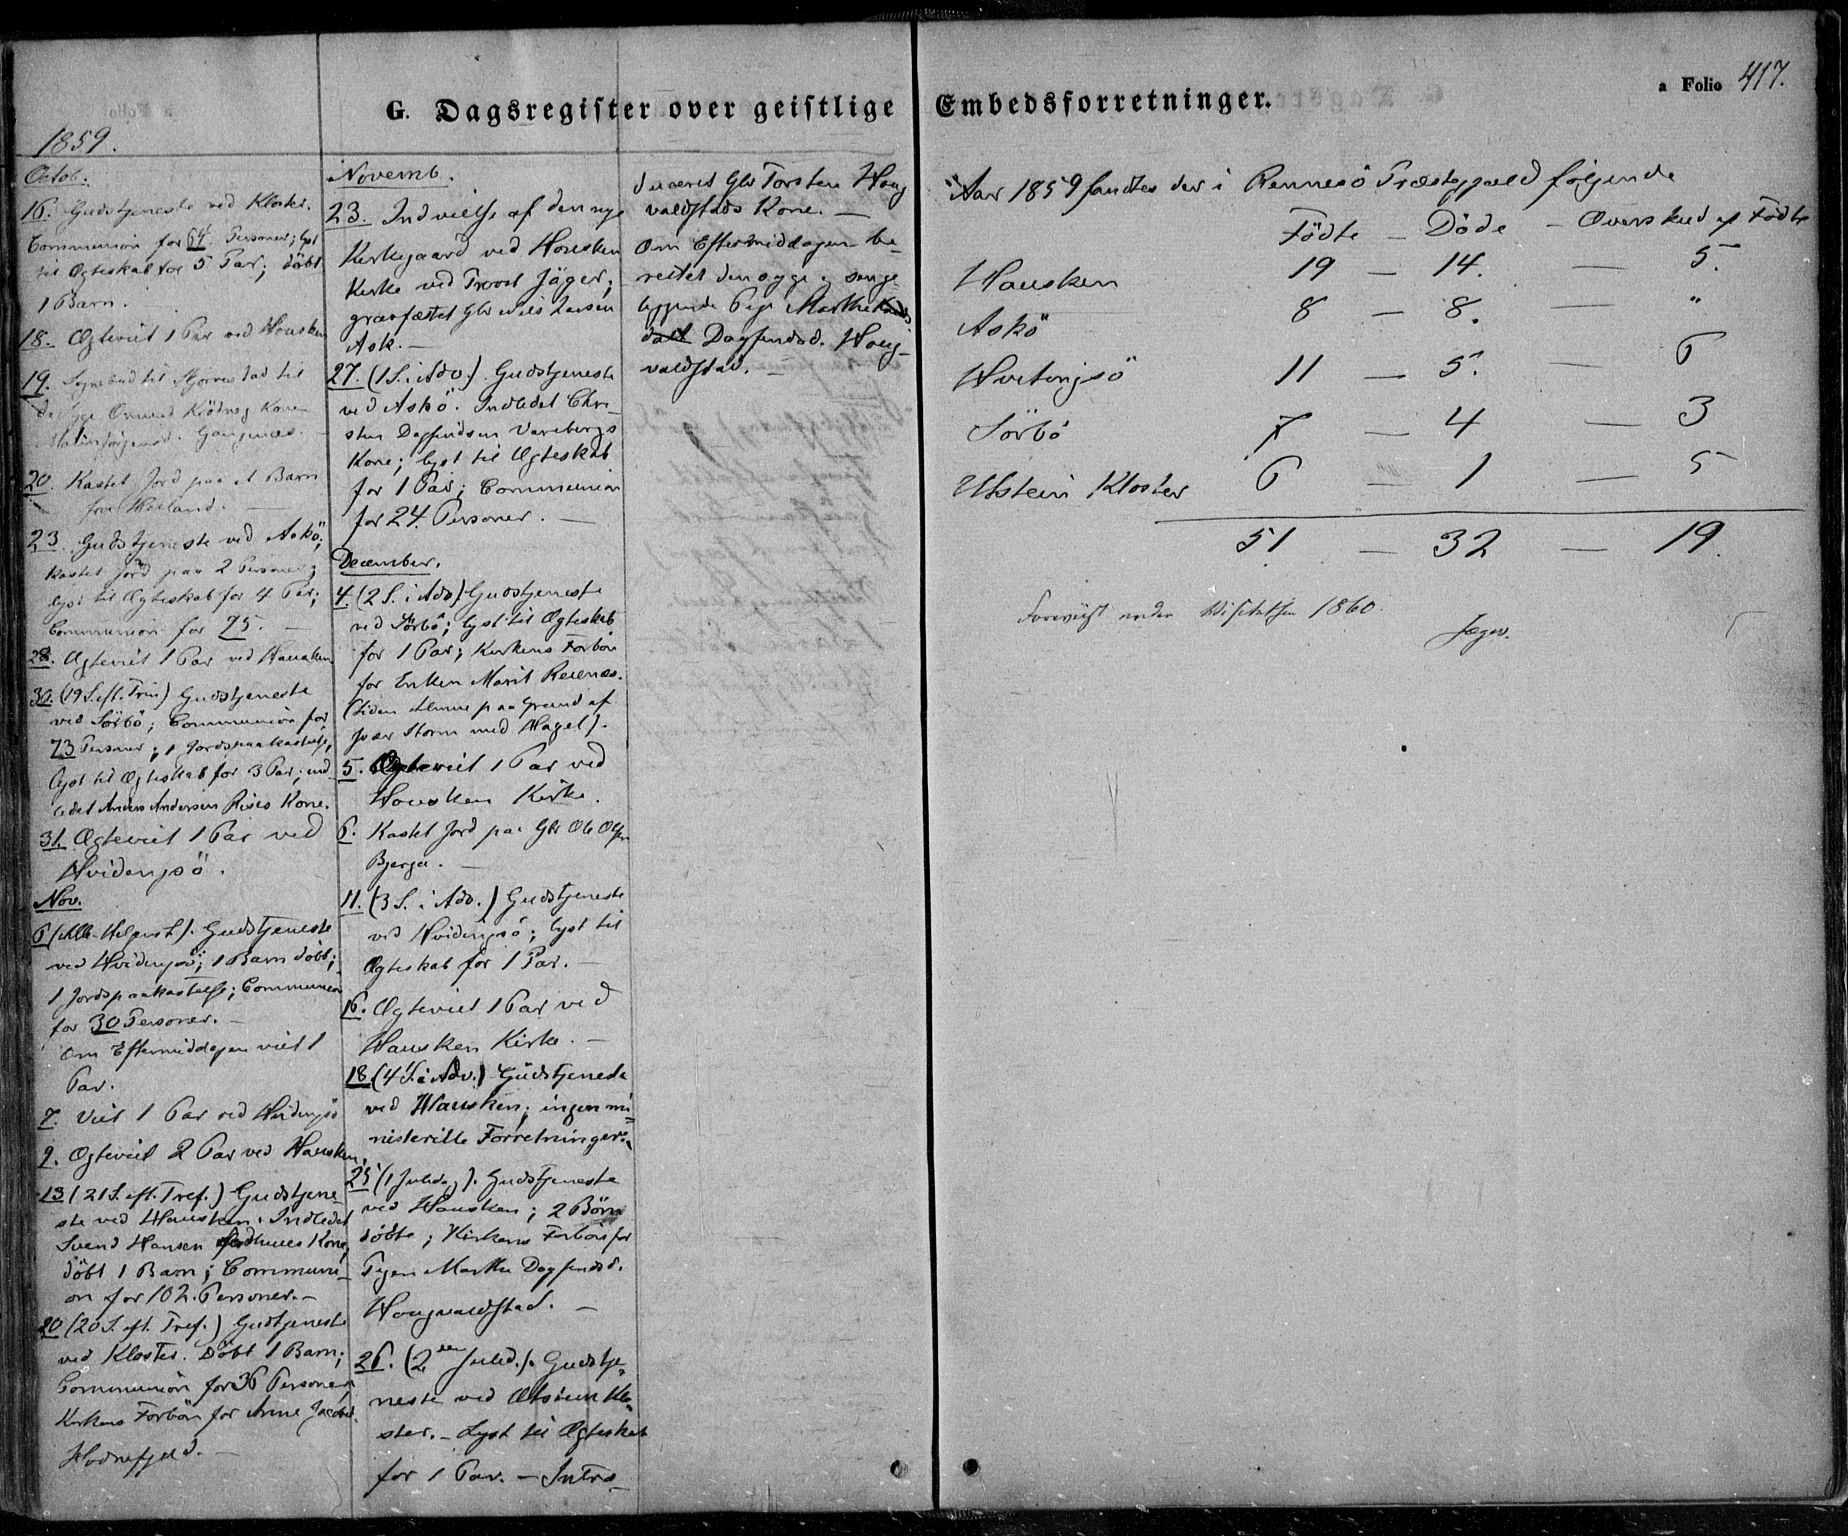 G. Dagsregister over geistlige Embedsforretninger.
a Folio 417.
1859.
Octob.
16. Gudstjeneste ved Kloster.
Communion for 64 Personer; lyst
til Ægteskab for 5 Par; döbt
1 Barn.
18. Ægteviet 1 Par ved Hausken
19. Sognebud til til
Syge Kone
20. Kastet Jord paa et Barn
fra
23. Gudstjeneste ved Askö;
kastet Jord paa 2 Personer;
lyst til Ægteskab for 4 Par;
Communion for 75. —
28. Ægteviet 1 Par ved Hausken
30. (19 S. eft. Trin) Gudstjeneste
ved Sörbö; Communion for
73 Personer; 1 Jordspaakastelse,
lyst til Ægteskab for 3 Par; ind
ledet Anders Andersen Rises Kone.
31. Ægteviet 1 Par ved
Hvidingsö.
Nov.
6 (Alle-Helgensf.). Gudstjeneste
ved Hvidingsö; 1 Barn döbt;
1 Jordspaakastelse; Communion
for 30 Personer. —
Om Eftermiddagen viet 1
Par.
7. Viet 1 Par ved Hvidingsö
9. Ægteviet 2 Par ved Hausken.
13 (21 S. eft. Tref.) Gudstjene-
ste ved Hausken. Indledet
Svend Hansen Kone,
döbt 1 Barn; Communi-
on for 102 Personer. —
20 (20 S. eft. Tref.) Gudstjeneste
ved Kloster. Döbt 1 Barn;
Communion for 36 Personer,
Kirkens Forbön for Anne Jacobsd.
Hodnefjeld. —
Novemb.
23. Indvielse af den nye
Kirkegaard ved Hausken
Kirke ved Provst Jäger;
gravfæstet Gbr Nils Larsen
Ask. —
27. (1 S. i Adv.). Gudstjeneste
ved Askö. Indledet Chri-
sten Dagfindsen Varebergs
Kone; lyst til Ægteskab
for 1 Par; Communion
for 24 Personer. —
December.
4. (2 S. i Adv.) Gudstjeneste
ved Sörbö; lyst til Ægteskab
for 1 Par; Kirkens Forbön
for Enken Marit Reienæs.
(Siden paa Grund af
svær Storm med Hagel).
5. Ægteviet 1 Par ved
Hausken Kirke.
6. Kastet Jord paa Gbr Ole Olsen
Bjerga. —
11. (3 S. i Adv.) Gudstjeneste
ved Hvidingsö; lyst til
Ægteskab for 1 Par. —
16. Ægteviet 1 Par ved
Hausken Kirke. —
18 (4 S. i Adv.) Gudstjeneste
ved Hausken; ingen mi-
nisterielle Forretninger.
25 (1 Juledag). Gudstjeneste
ved Hausken; 2 Börn
döbte; Kirkens Forbön for
Pigen Marthe Dagfindsd.
Hougvaldstad. —
26. (2den Juled.). Gudstje-
neste ved Utstein Klo-
ster. — Lyst til Ægteskab
for 1 Par. — Intro-
duceret Gbr Torsten Houg
valdstads Kone. —
Om Eftermiddagen be-
rettet den syge, senge-
liggende Pige Marthe
Dagfindsd. Houg-
valdstad. —
Aar 1859 fandtes der i Rennesö Præstegjæld følgende
Födte — Döde — Overskud af Födte
Hausken 19 — 14. — 5.
Askö 8 — 8. — "
Hvitingsö 11 — 5. — 6
Sörbö 7 — 4 — 3
Utstein Kloster 6 — 1 — 5
51 — 32 — 19.
Foreviist under Visitatsen 1860.
Jæger.